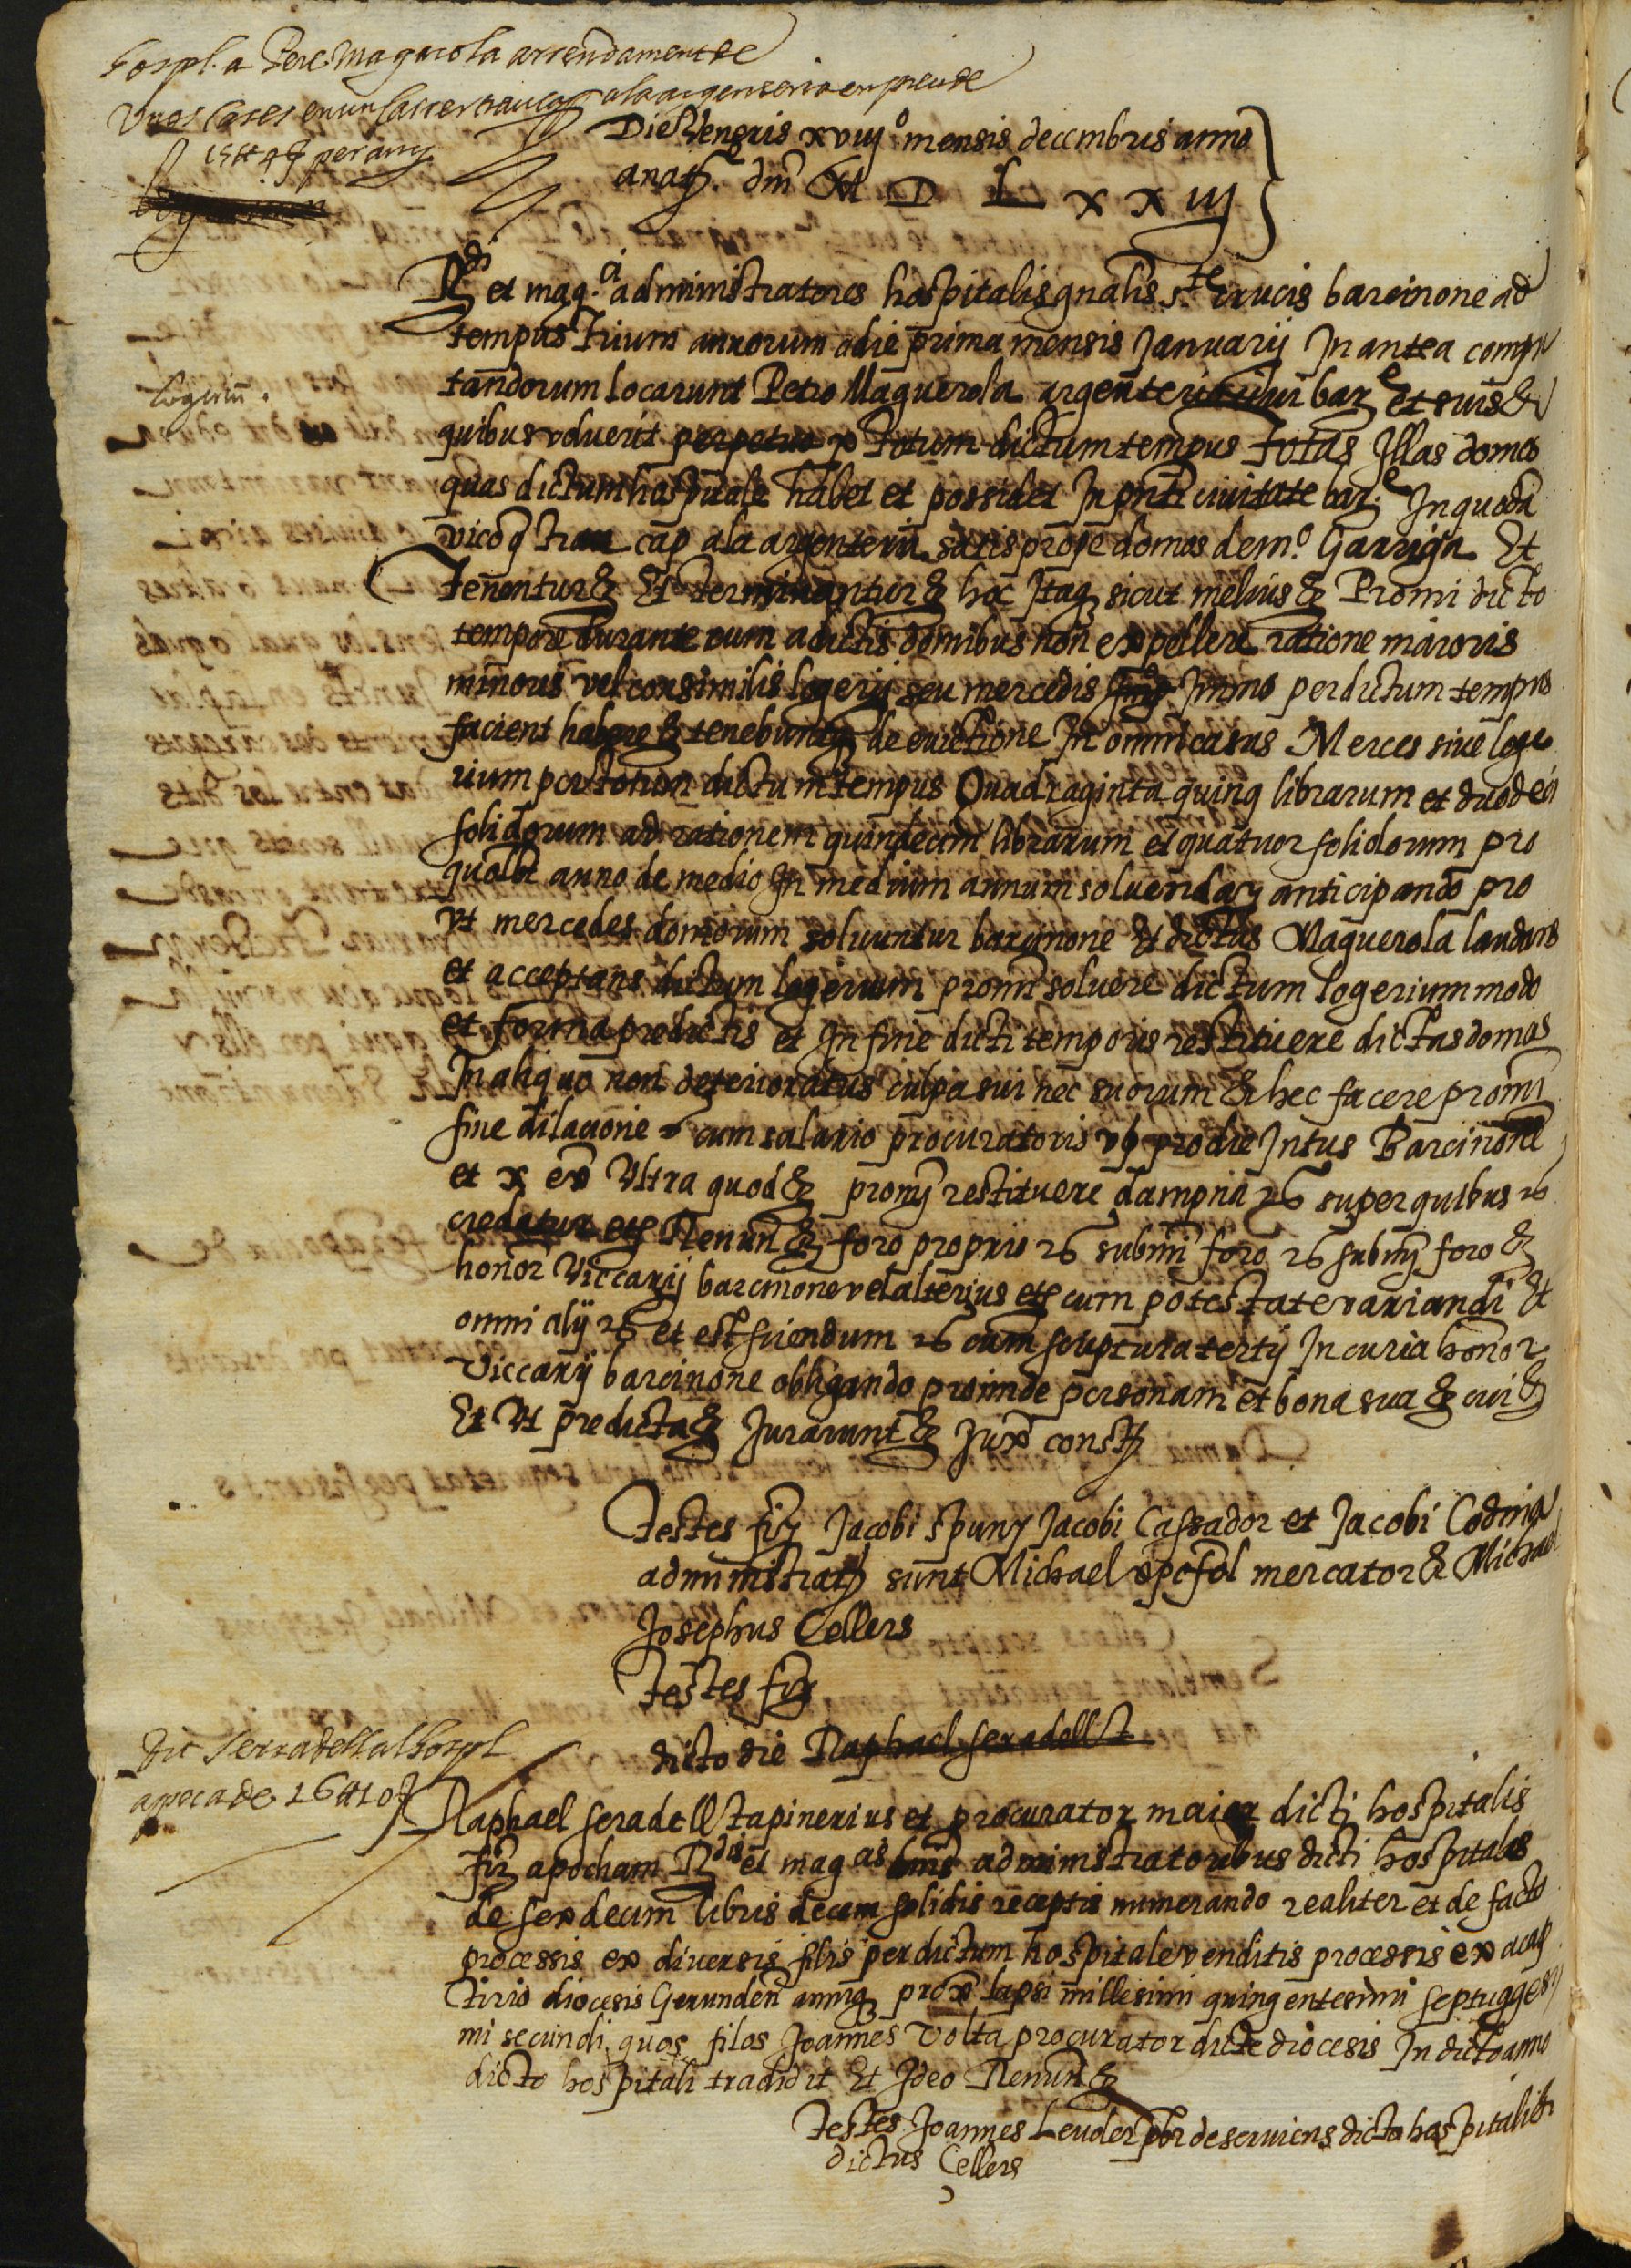 hospl. a Pere Magarola arrendament de
Unes Cases en un carrer trauca a la argenteria en preu de
15 ll 4 s per any
Die Veneris xviij° mensis decembris anno
a nat. dni M D L x x iij
Rdi et mag.ci administratores hospitalis gnalis s.te crucis barcinone ad
tempus trium annorum a die prima mensis Januarij In antea compu
tandorum locarunt Petro Maguerola argenterio civi bar.e et suis &
logeriu.
quibus voluerit perpetuo p totum dictum tempus totas Illas domos
quas dictum hospitale habet et possidet In pnti civitate bar.e In quoda
vico q trau cap a la argenteria satis prope domos dem.° Garriga Et
Tenentur & Et terminantur & hoc Itaq sicut melius & Promi dicto
tempore durante eum a dictis domibus non expellere ratione maioris
minoris vel consimilis logerij seu mercedis Immo per dictum tempus
facient habere & tenebuntur de evictione In omni casus Merces sive loge
rium per totum dictum tempus Quadraginta quinq librarum et duodeci
solidorum ad rationem quindecim librarum et quatuor solidorum pro
quolbt anno de medio In medium annum solvendar anticipando pro
Vt mercedes domorum solvuntur barcinone Et dictus Maguerola laudans
et acceptans dictum logerium promi solvere dictum logerium modo
et forma predictis et In fine dicti temporis restituere dictas domos
In aliquo non deterioratas culpa sui nec suorum & hec facere promi
sine dilacione cum salario procuratoris v s pro die Intus Barcinone
et x ex Ultra quod & promi restituere dampna & super quibus &
credatur etc Renun & foro proprio & submi foro & submi foro &
honor Viccarij barcinone vel alterius etc cum potestate variandi Et
omni alij & et est sciendum & cum scriptura tertij In curia honor
Viccarij barcinone obligando proinde personam et bona sua & civi &
Et Vt predicta & Jurarunt & Jux const
Testes fir Jacobi spuny Jacobi Cassador et Jacobi Codina
administrat sunt Michael mercator & Michael
Josephus Cellers
Testes fir
dicto die Raphael seradell t
Dit Serradell al hospl
apoca de 16 ll 10 s
Raphael seradell tapinerius et procurator maior dicti hospitalis
fir apocham Rdis et mag.cis dnis administratoribus dicti hospitalis
de sexdecim libris decem solidis receptis numerando realiter et de facto
processis ex diversis filis per dictum hospitale venditis processis ex acap
tirio diocesis Gerunden anniq prox lapsi millesimi quingentesimi septuagesi
mi secundi quos filos Joannes Volta procurator dicte diocesis In dicto anno
dicto hospitali tradidit Et Ideo Renun &
Testes Joannes Leuder pbr deserviens dicto hospitali &
dictus Cellers